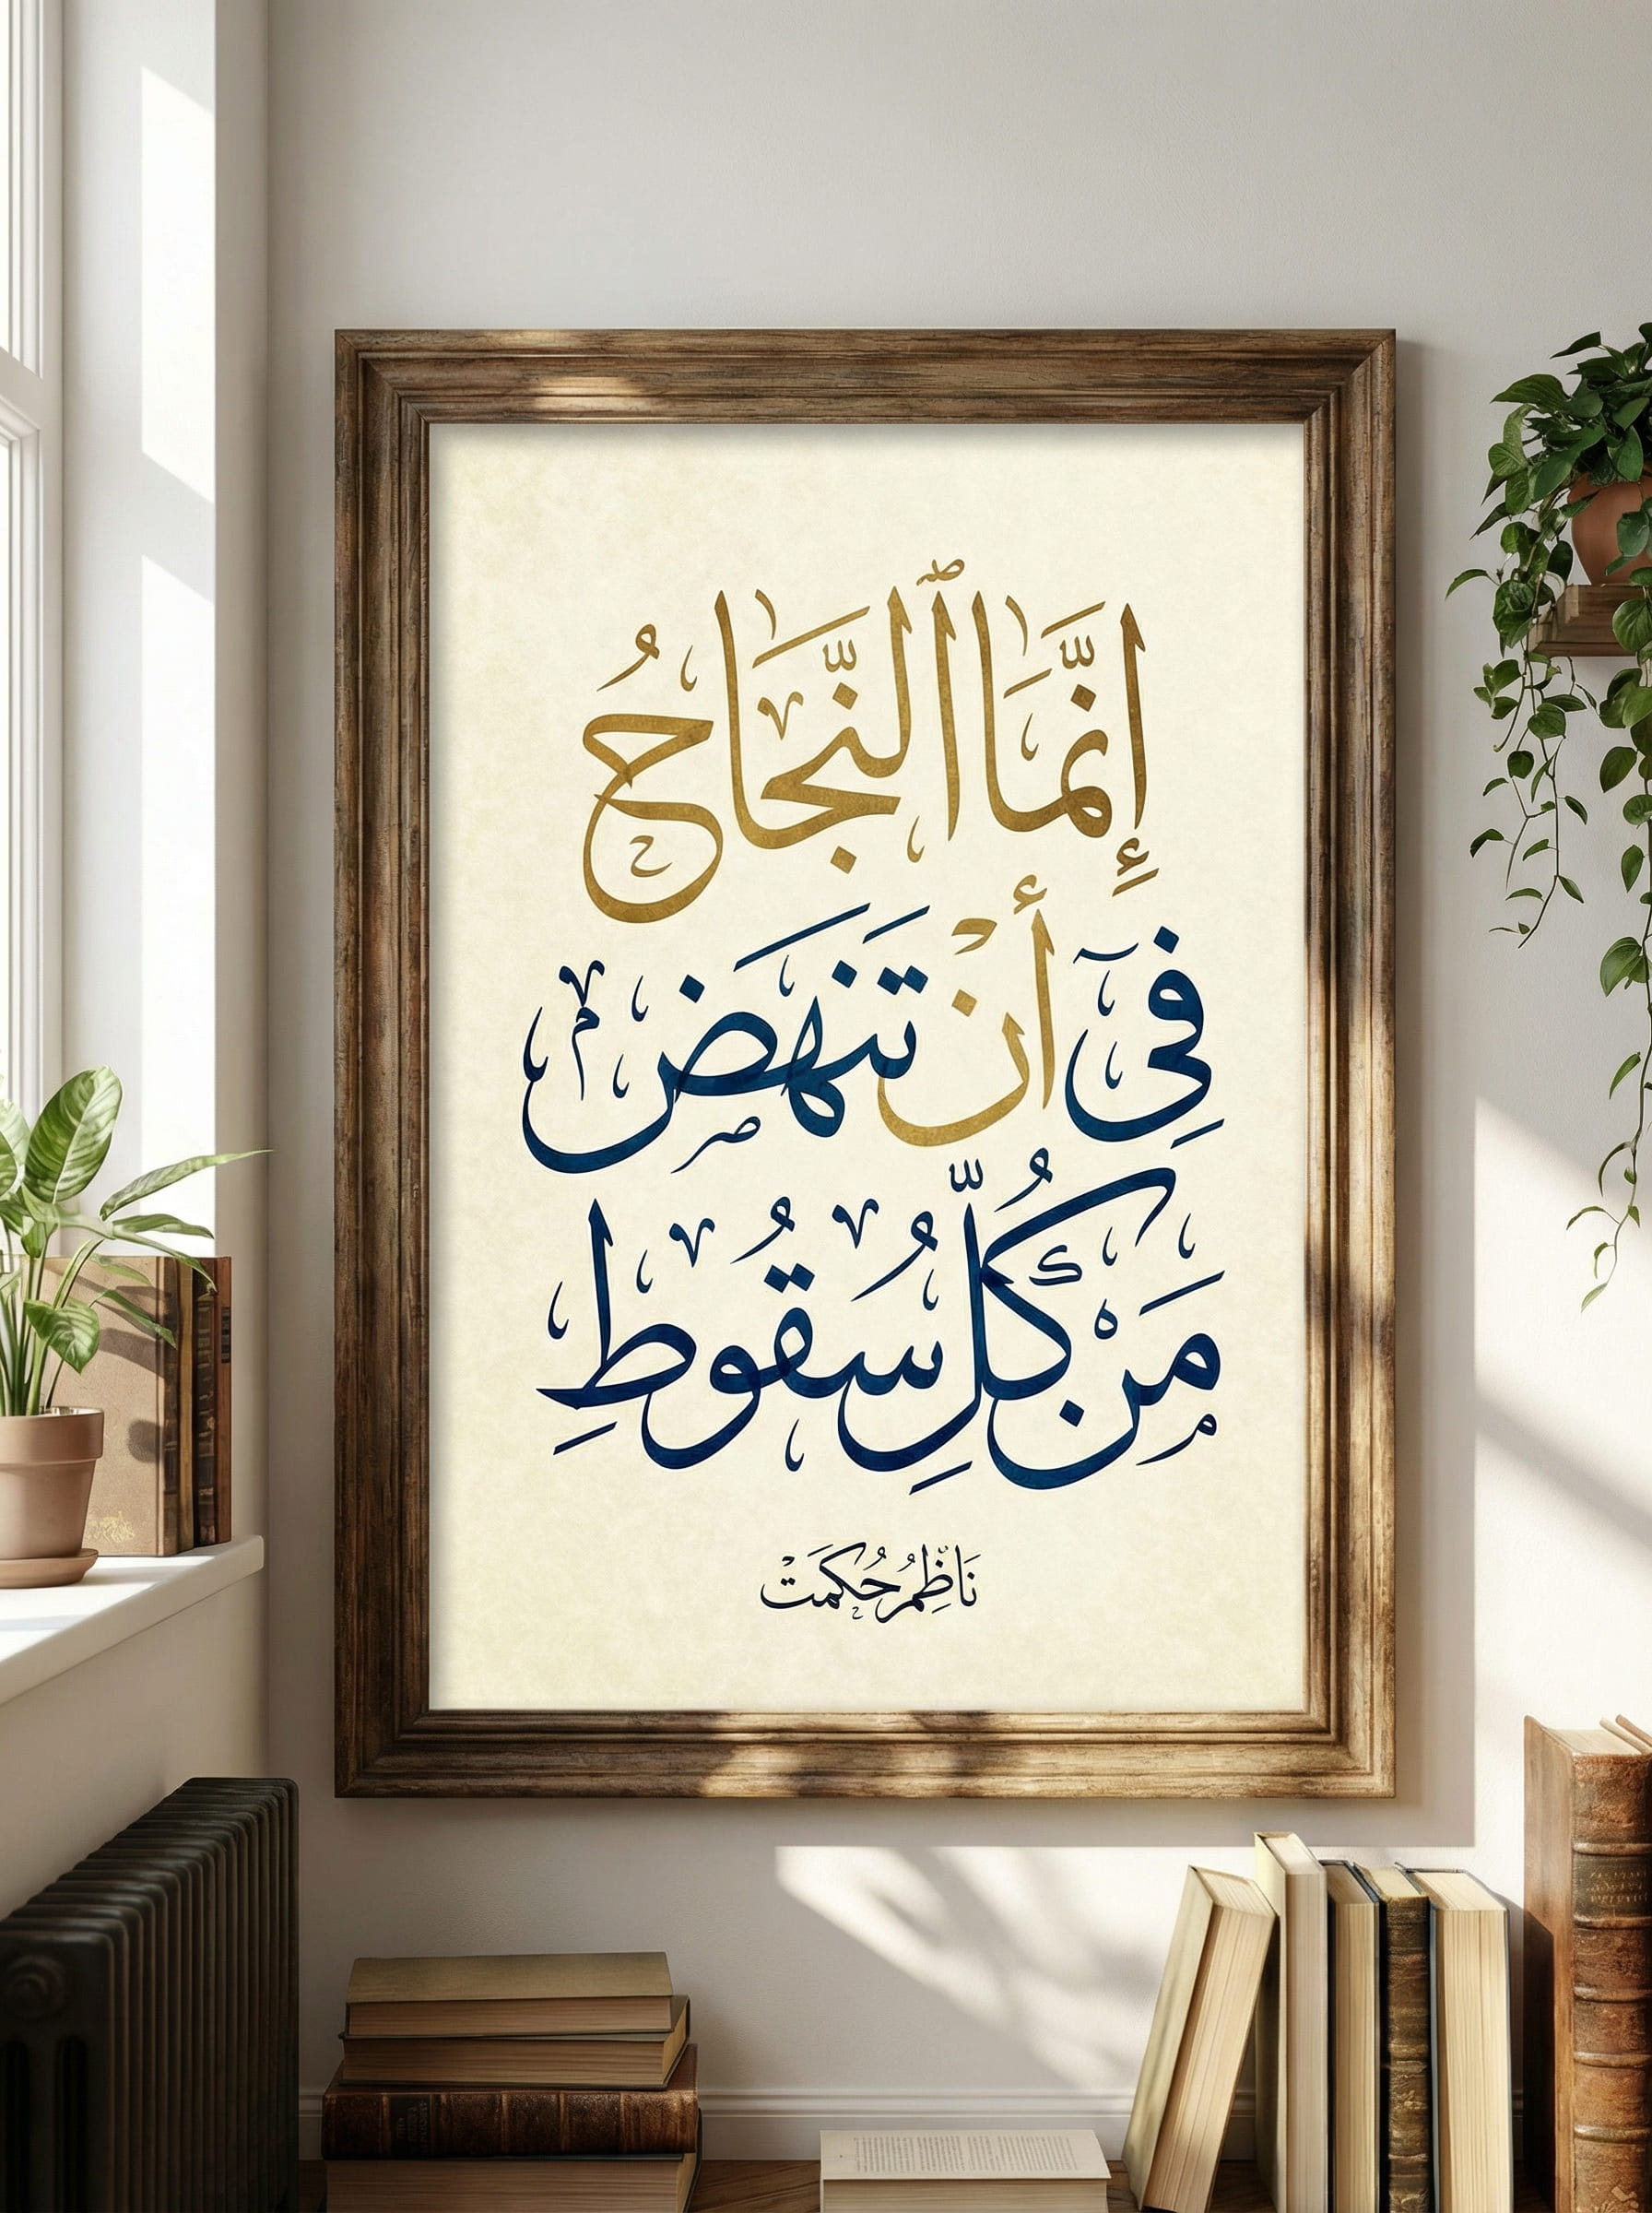 إِنَّمَا ٱلنَّجَاحُ
فِي أَنْ تَنَهَض
مَنْ كُلِّ سُقُوطٍ
نَاظِمُ حُكمَتْ